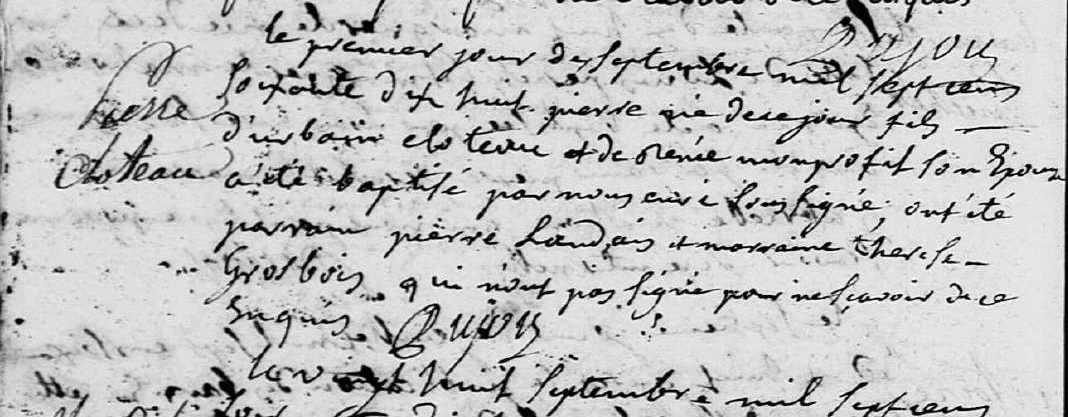 Dujou
le premier jour de septembre mil sept cens
soixante dix huit pierre né de ce jour fils
pierre
d'urbain cloteau et de Renée monprofit son Epouse
cloteau
a été baptisé par nous curé soussigné, ont été
parrain pierre Landais et marraine therese
Grosbois qui n'ont pas signé pour ne sçavoir de ce
Enquis Dujou
le vingt huit septembre mil sept cens